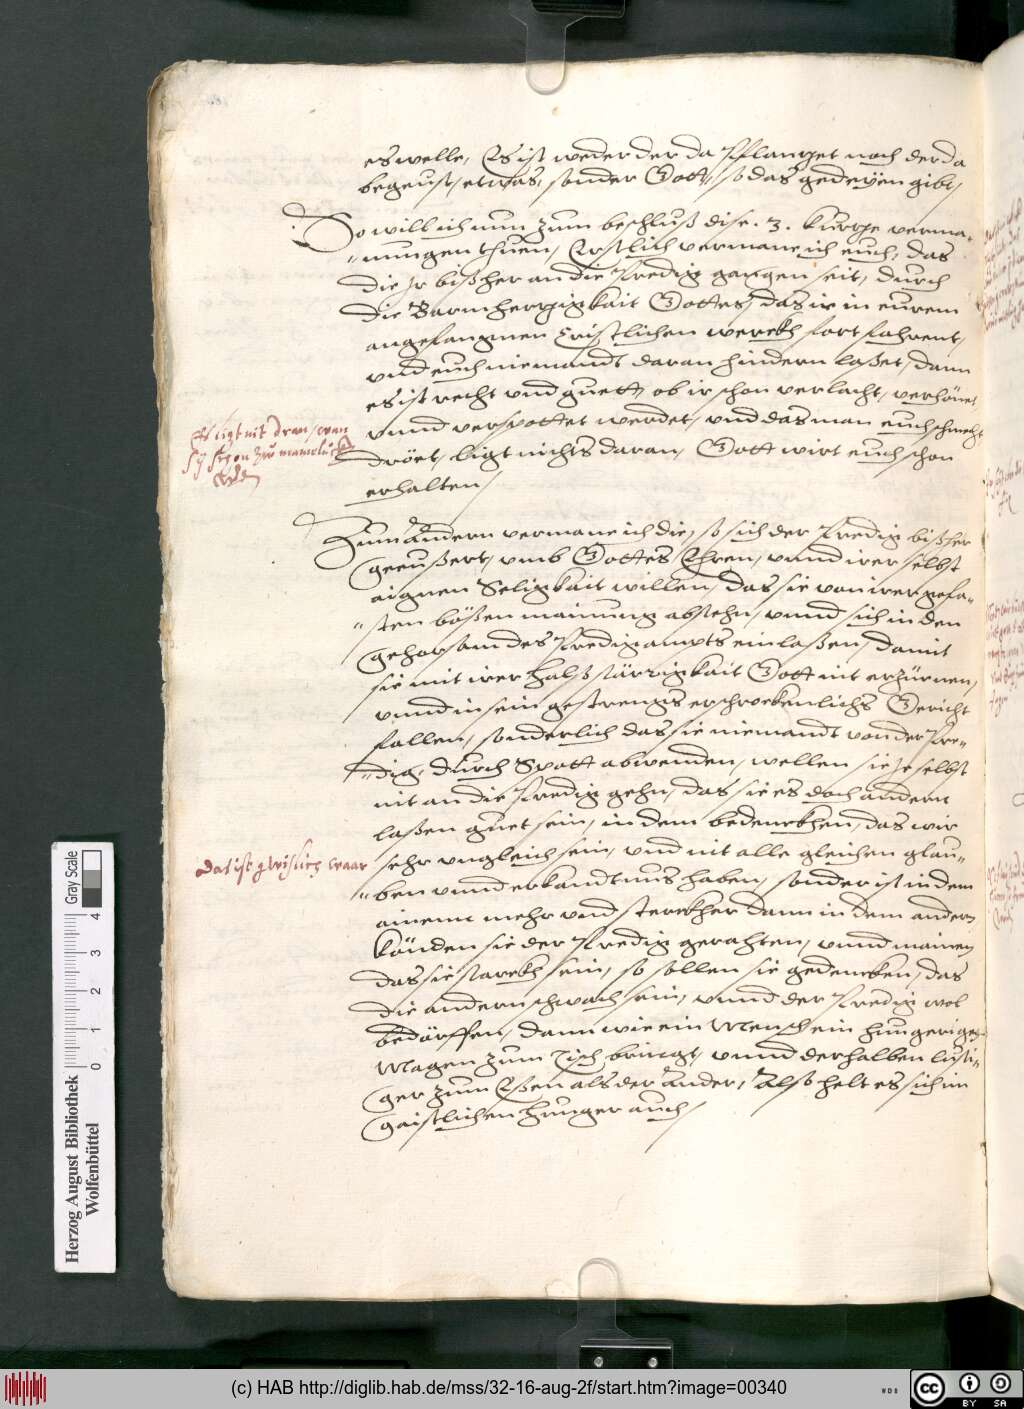 es welle, Es ist weder der da Pflantzet noch der da
begeust, etwas, sonder Gott, so das gedeyen gibt,
So will ich nun zum beschluß dise .3. kurtze verma¬
¬nungen thuen, Erstlich vermane ich euch, das
die Jr bißher an die Predig gangen seit, durch
die Barmhertzigkait Gottes, das ir in eurem
angefangnen Cristlichen werckh fort fahrent,
vnd euch niemandt daran hindern laßet, dann
es ist recht vnd guett, ob ir schon verlacht, verhönet
vnnd verspottet werdet, vnd das man euch schmecht
dröet, ligt nichts daran, Gott wirt euch schon
erhalten,
Es ligt nit dran, wan
sy
Zum Andern vermane ich die, so sich der Predig bißher
geeußert, vmb Gottes Ehren, vnnd irer selbst
aignen Seligkait willen, das sie von irer gefa¬
¬sten bößen mainung abstehn, vnnd sich in den
gehorsam des Predigampts einlaßen, damit
sie mit irer halßstärrigkait Gott nit erzürnen,
vnnd in sein gestrengs erschrockenlichs Gericht
fallen, sonderlich das sie niemandt von der Pre¬
¬dig, durch Spott abwenden, wellen sie Je selbst
nit an die Predig gehn, das sie es doch andern
laßen guet sein, in dem bedenckhen, das wir
sehr vngleich sein, vnd nit alle gleichen glau¬
¬ben vnnd erkandtnus haben, sonder ist in dem
ainem mehr vnd sterckher dann in dem andern
Das ist gwislich waar
könden sie der Predig gerahten, vnnd mainen
das sie starckh sein, so sollen sie gedencken, das
die andern schwach sein, vnnd der Predig wol
bedörffen, dann wie ein Mensch ein hungerigen
Magen zum Tisch bringt, vnnd derhalben lusti¬
ger zum Eßen als der Ander, Also helt es sich im
gaistlichen hunger auch,
Gray Scale
0 1 2 3 4
Herzog August Bibliothek
Wolfenbüttel
(c) HAB http://diglib.hab.de/mss/32-16-aug-2f/start.htm?image=00340
WDB
cc BY SA